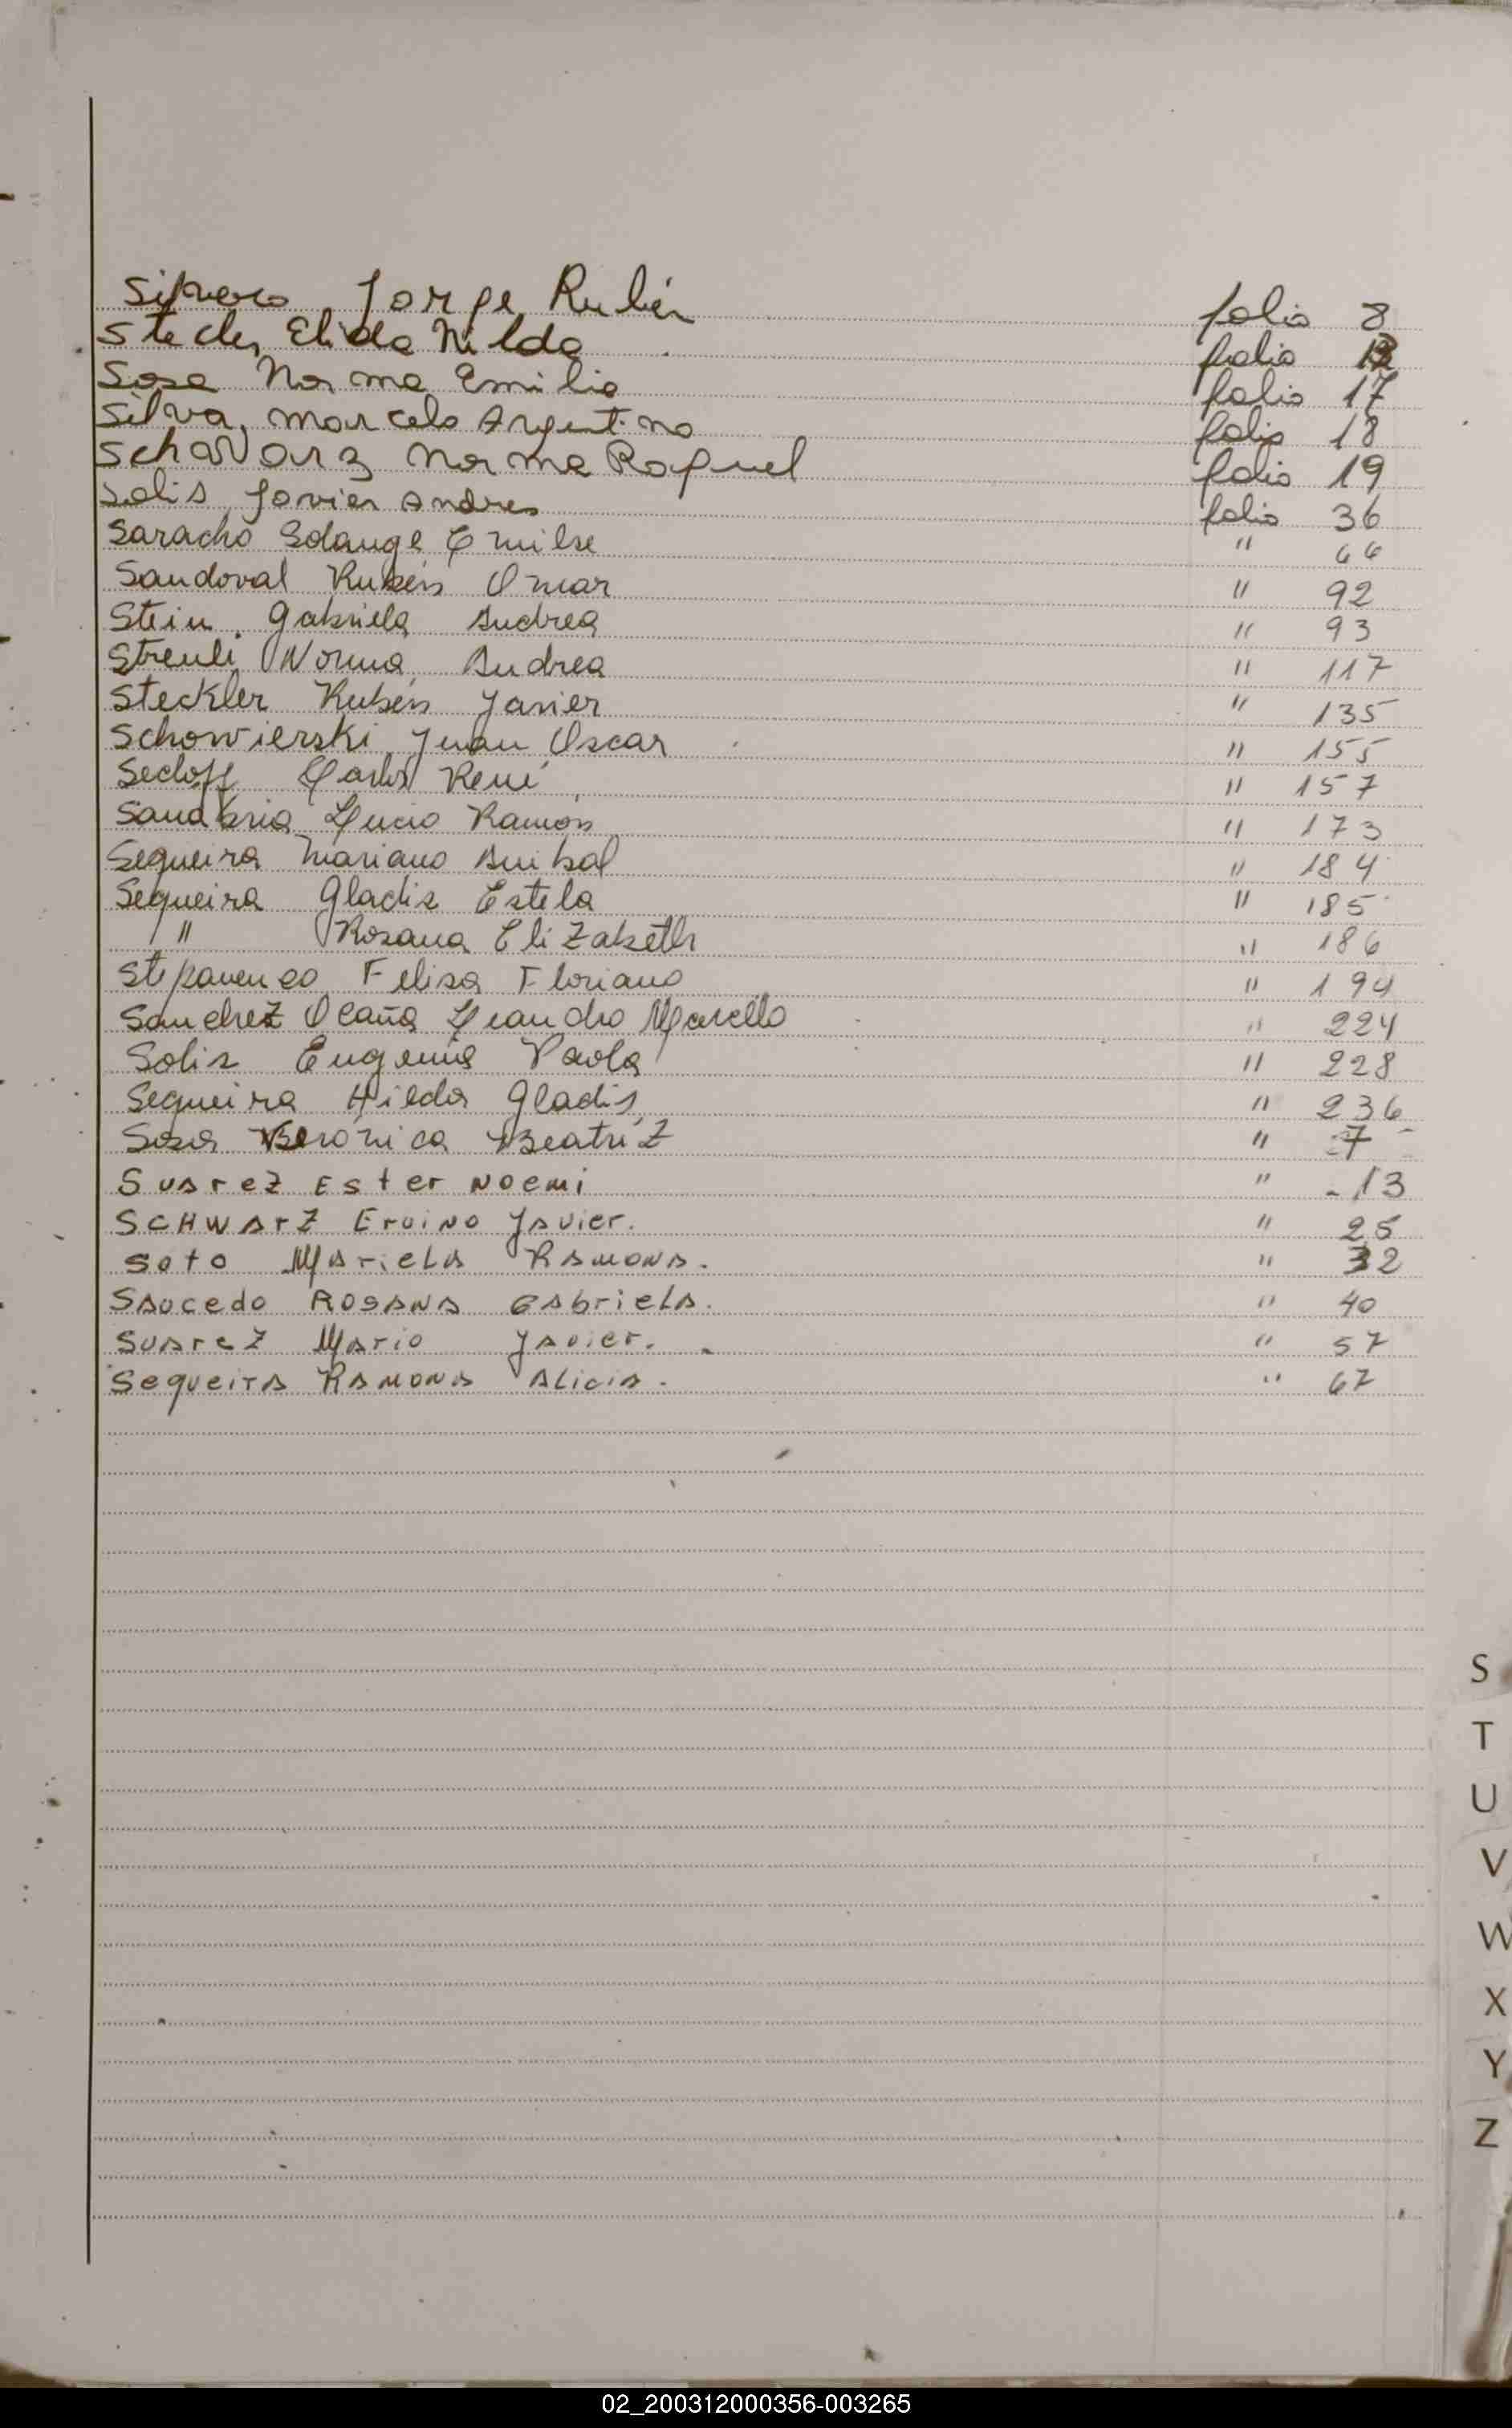 Silvero Jorge Rubén folio 8
Stecler Elida Nilda folio
Sosa Norma Emilia folio 17
Silva, Marcelo Argentino folio 18
Schawarz Norma Raquel folio 19
Solis Javier Andres folio 36
Saracho Solange Emilse " 66
Sandoval Rubén Omar " 92
Stein Gabriela Andrea " 93
Streuli Norma Andrea " 117
Steckler Rubén Javier " 135
Schowierski Juan Oscar " 155
Secloff Carlos René " 157
Sanabria Lucio Ramón " 173
Sequeira Mariano Anibal " 184
Sequeira Gladis Estela " 185
" Rosana Elizabeth " 186
Stepanenco Felisa Floriano " 194
Sanchez Ocaña Leandro Marcelo " 224
Solis Eugenia Paola " 228
Sequeira Hilda Gladis " 236
Sosa Verónica Beatriz " 7
Suarez Ester Noemi " 13
SCHWArZ Ervino Javier. " 25
Soto Mariela Ramona. " 32
Saucedo Rosana Gabriela. " 40
Suarez Mario Javier. " 57
Sequeira Ramona Alicia. " 67
S
T
U
V
W
X
Y
Z
02_200312000356-003265